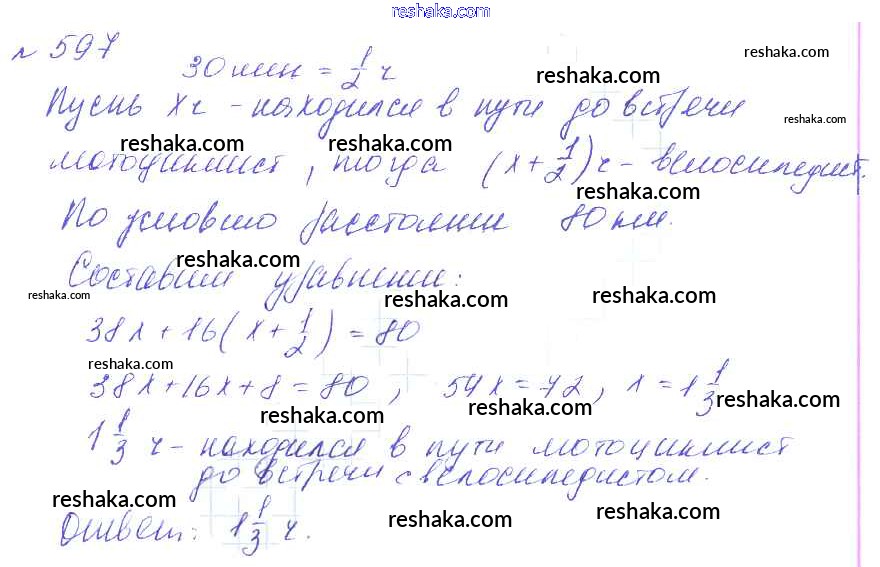 reshaka.com
№ 597
reshaka.com
30 мин = 1/2 ч
reshaka.com
Пусть x ч - находился в пути до встречи
reshaka.com
reshaka.com reshaka.com
мотоциклист, тогда (x + 1/2) ч - велосипедист.
reshaka.com
По условию расстояние 80 км.
reshaka.com reshaka.com
Составим уравнение:
reshaka.com reshaka.com reshaka.com
38x + 16(x + 1/2) = 80
reshaka.com
38x + 16x + 8 = 80, 54x = 72, x = 1 1/3
reshaka.com reshaka.com reshaka.com
1 1/3 ч - находился в пути мотоциклист
до встречи с велосипедистом.
reshaka.com reshaka.com
reshaka.com reshaka.com
Ответ: 1 1/3 ч.